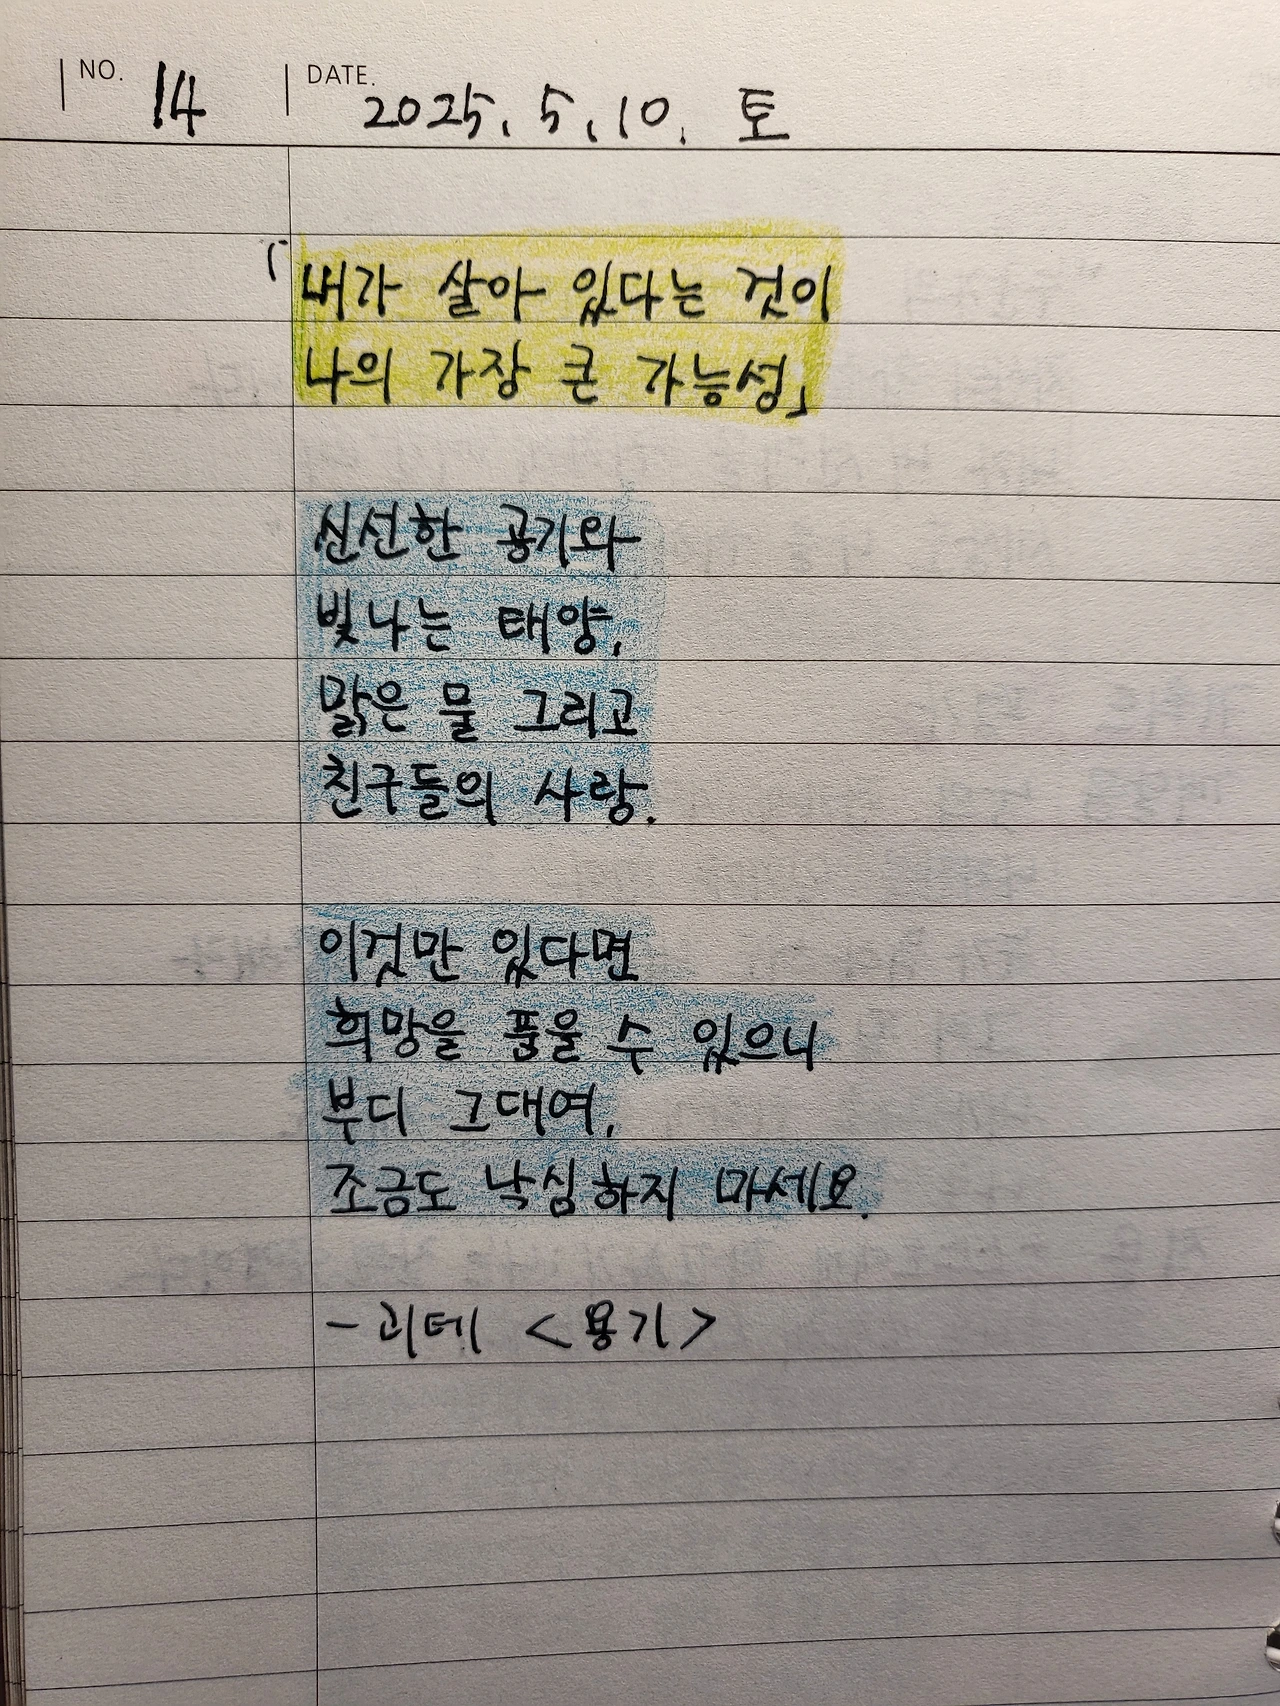 NO. 14 DATE. 2025. 5. 10. 토
「내가 살아 있다는 것이
나의 가장 큰 가능성」
신선한 공기와
빛나는 태양,
맑은 물 그리고
친구들의 사랑.
이것만 있다면
희망을 품을 수 있으니
부디 그대여,
조금도 낙심하지 마세요.
- 괴테 <용기>